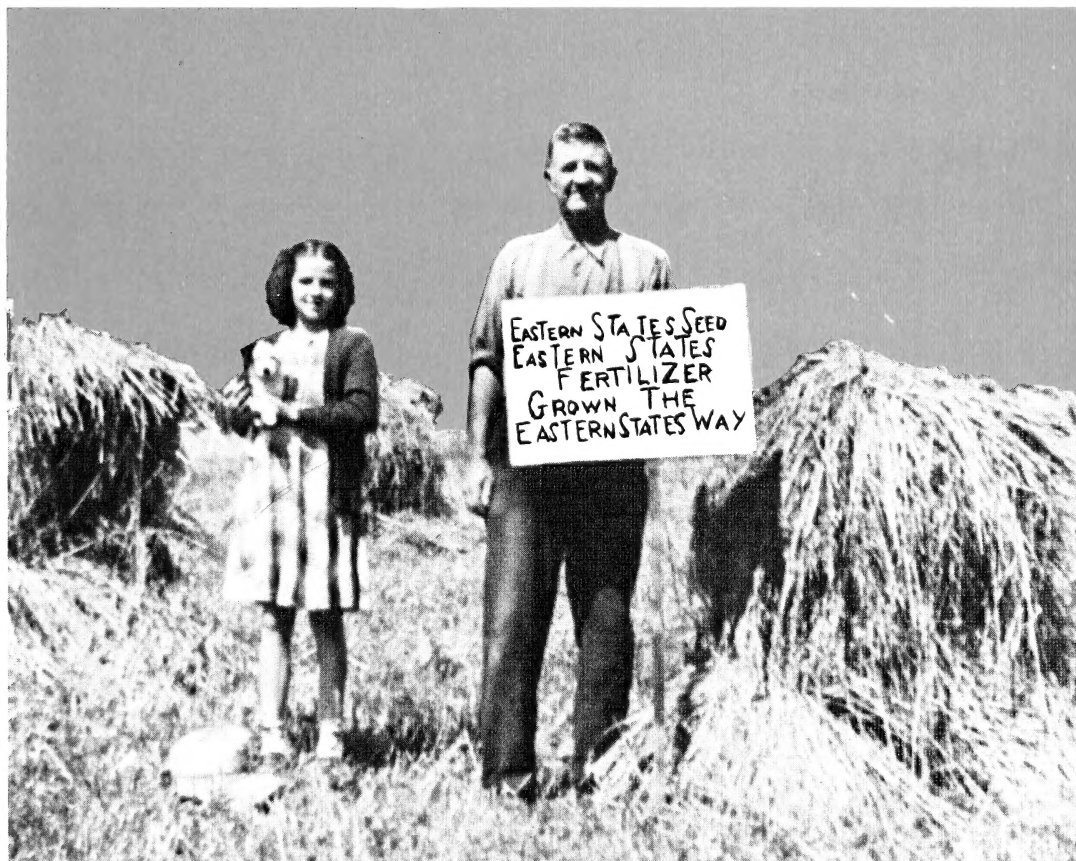 EASTERN STATES SEED
EASTERN STATES
FERTILIZER
GROWN THE
EASTERN STATES WAY